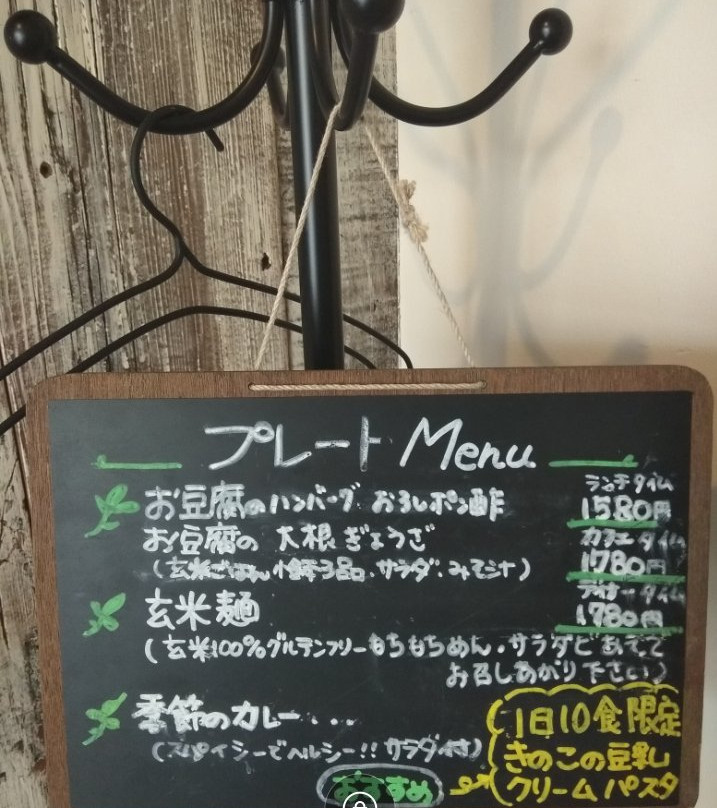 プレート Menu
お豆腐のハンバーグ おろしポン酢
ランチタイム
1580円
お豆腐の 大根ぎょうざ
カフェタイム
1780円
(玄米ごはん、小鉢3品、サラダ、みそ汁)
ディナータイム
1780円
玄米麺
(玄米100%グルテンフリーもちもちめん、サラダとあえて
お召しあがり下さい)
季節のカレー...
(スパイシーでヘルシー!! サラダ付)
おすすめ
1日10食限定
きのこの豆乳
クリームパスタ